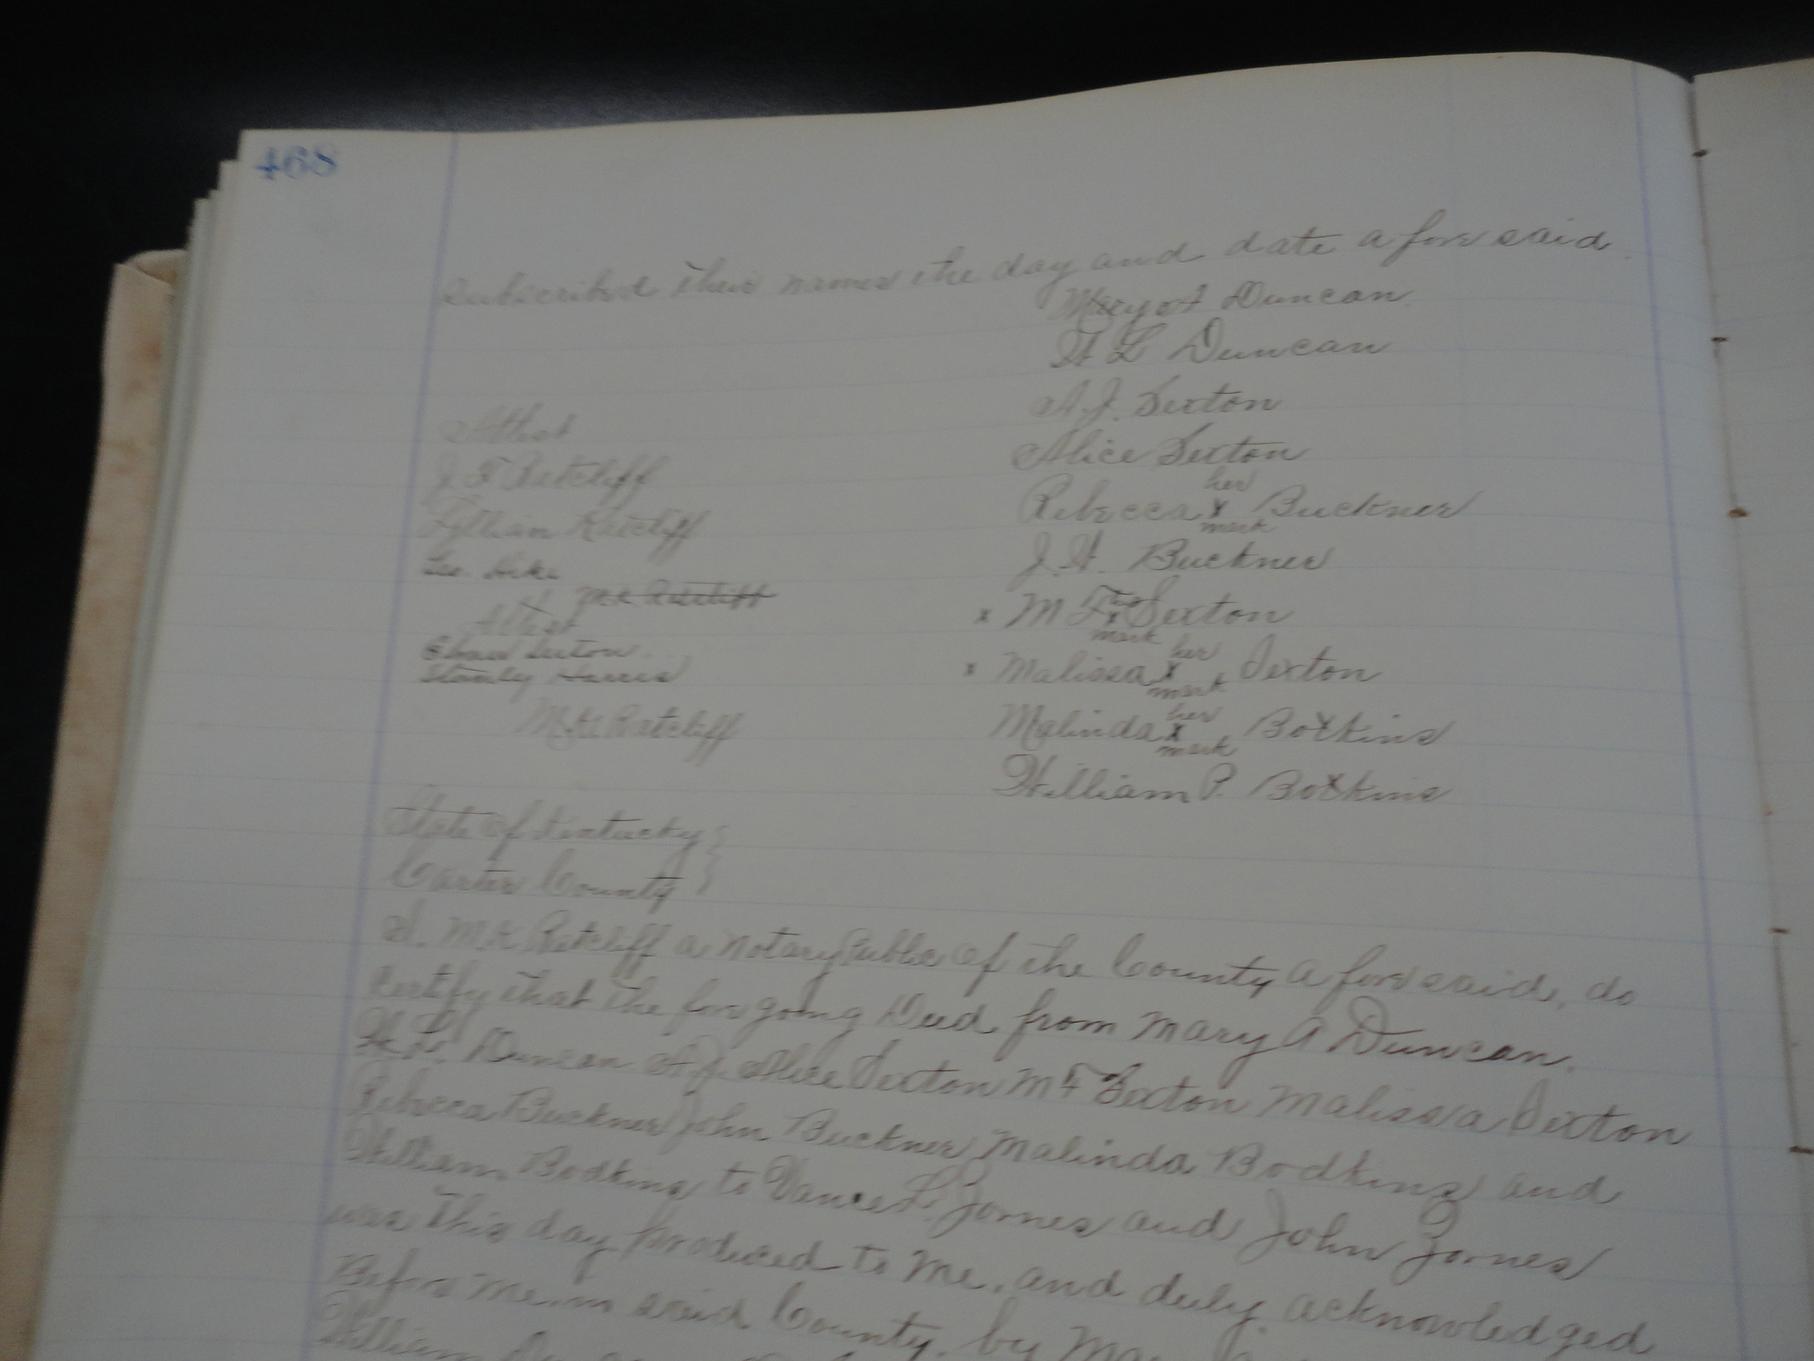 468
subscribed their names the day and date a fore said.
Mary A Duncan.
H L Duncan
Attest A.J. Sexton
J F Ratcliff Alice Sexton
Lyllian Ratcliff Rebecca her x mark Buckner
Geo. J.H. Buckner
M K Ratcliff
Attest x M F his x mark Sexton
Sexton.
Stanley Harris x Malissa her x mark Sexton
M K Ratcliff Malinda her x mark Botkins
William P. Botkins
State of Kentucky }
Carter County }
I. M K Ratcliff a Notary Public of the County a fore said, do
certify that the for going Deed from Mary A Duncan.
H L. Duncan A.J. Alice Sexton M F Sexton Malissa Sexton
Rebecca Buckner John Buckner Malinda Bodkins and
William Bodkins to Vance L. Zornes and John Zornes
was this day produced to me, and duly acknowledged
Before me, in said County, by
William